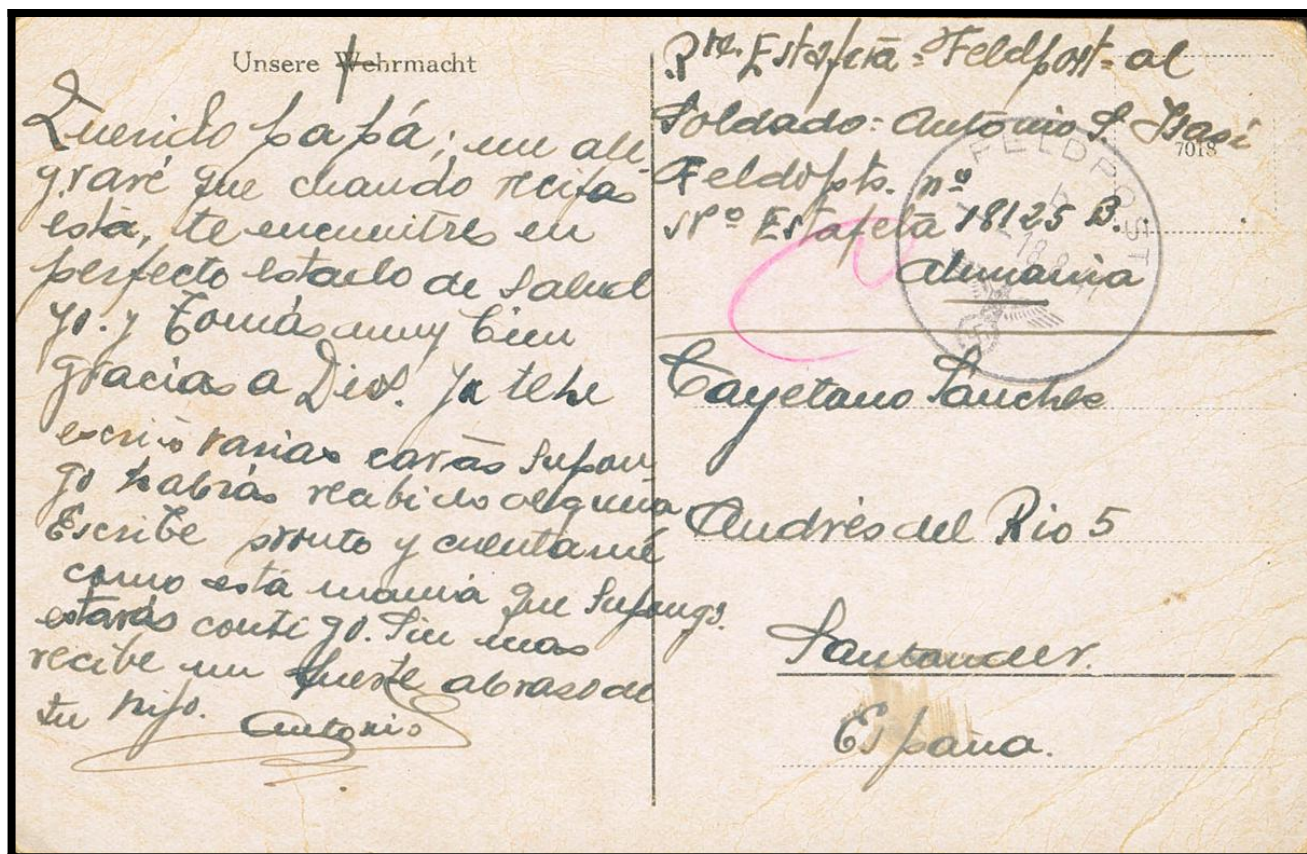 Unsere Wehrmacht
Querido papá; me ale
graré que chando recifas
está, te encuentres en
perfecto estado de Salud
yo. y Tomás muy bien
gracias a Dios. ya tehe
escrito varias cartas Supon
go habrás recibido alguna
Escribe pronto y cuentamé
como está mamá que Supongo.
estarás contigo. Sin mas
recibe un fuerte abraso de
tu hijo. Antonio
Rte. Estafeta = Feldpost = al
Soldado: Antonio S.
7018
Feldopts. nº
Nº Estafeta 18125 B.
Alemania
FELDPOST
Cayetano Sanches
Andrés del Rio 5
Santander.
España.